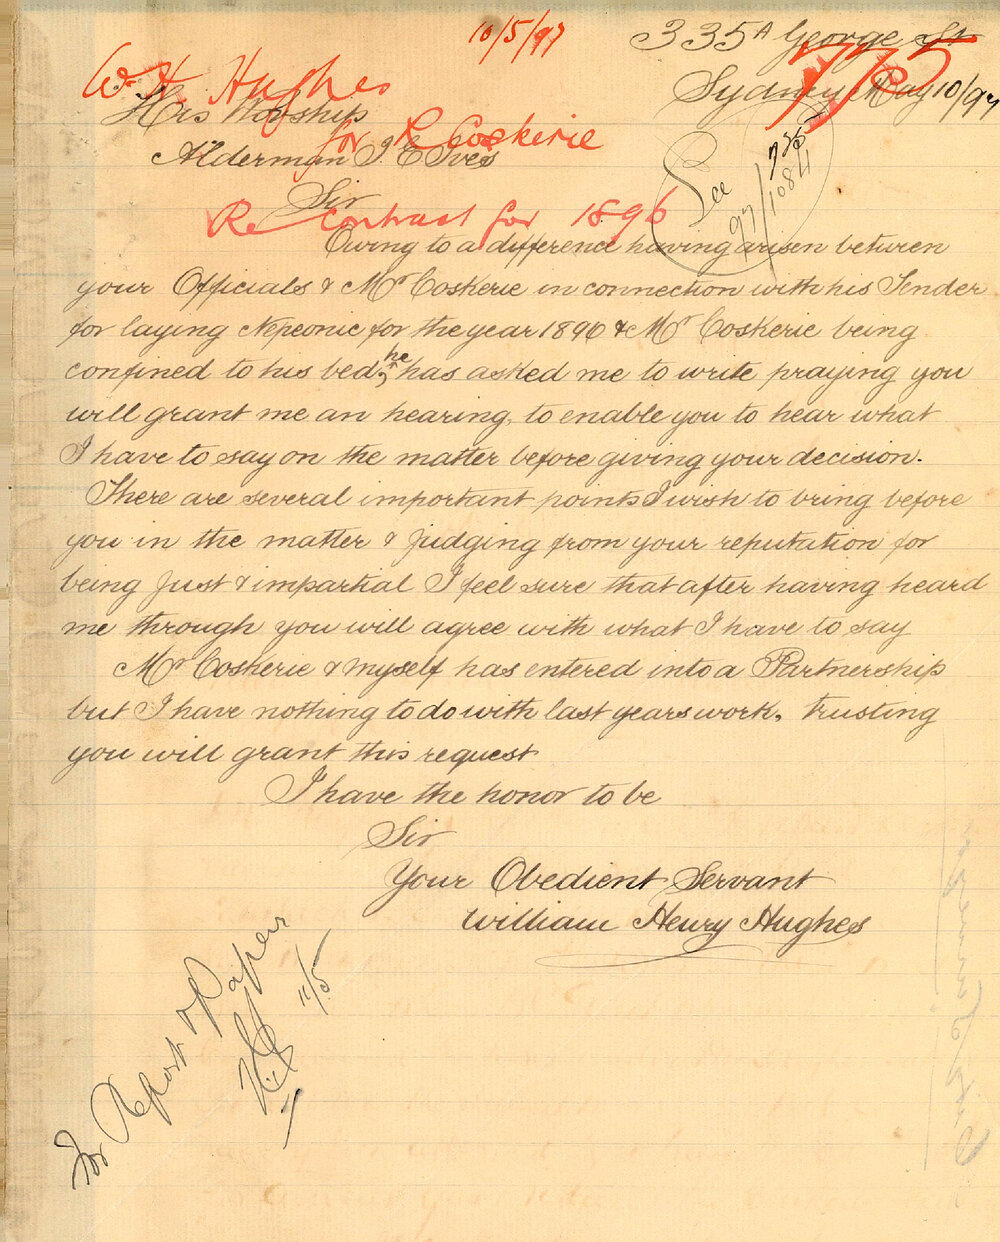 10/5/97
335A George St
775
Sydney May 10/97
W. H. Hughes
for R Coskerie
Re contract for 1896
See 97/1084
His Worship
Alderman I. E. Ives
Sir
Owing to a difference having arisen between
your Officials & Mr Coskerie in connection with his Tender
for laying Nepeonic for the year 1896 & Mr Coskerie being
confined to his bed, he has asked me to write praying you
will grant me an hearing, to enable you to hear what
I have to say on the matter before giving your decision.
There are several important points I wish to bring before
you in the matter & judging from your reputation for
being Just & impartial I feel sure that after having heard
me through you will agree with what I have to say
Mr Coskerie & myself has entered into a Partnership
but I have nothing to do with last years work. trusting
you will grant this request
I have the honor to be
Sir
Your Obedient Servant
William Henry Hughes
For Report & Papers
11/5